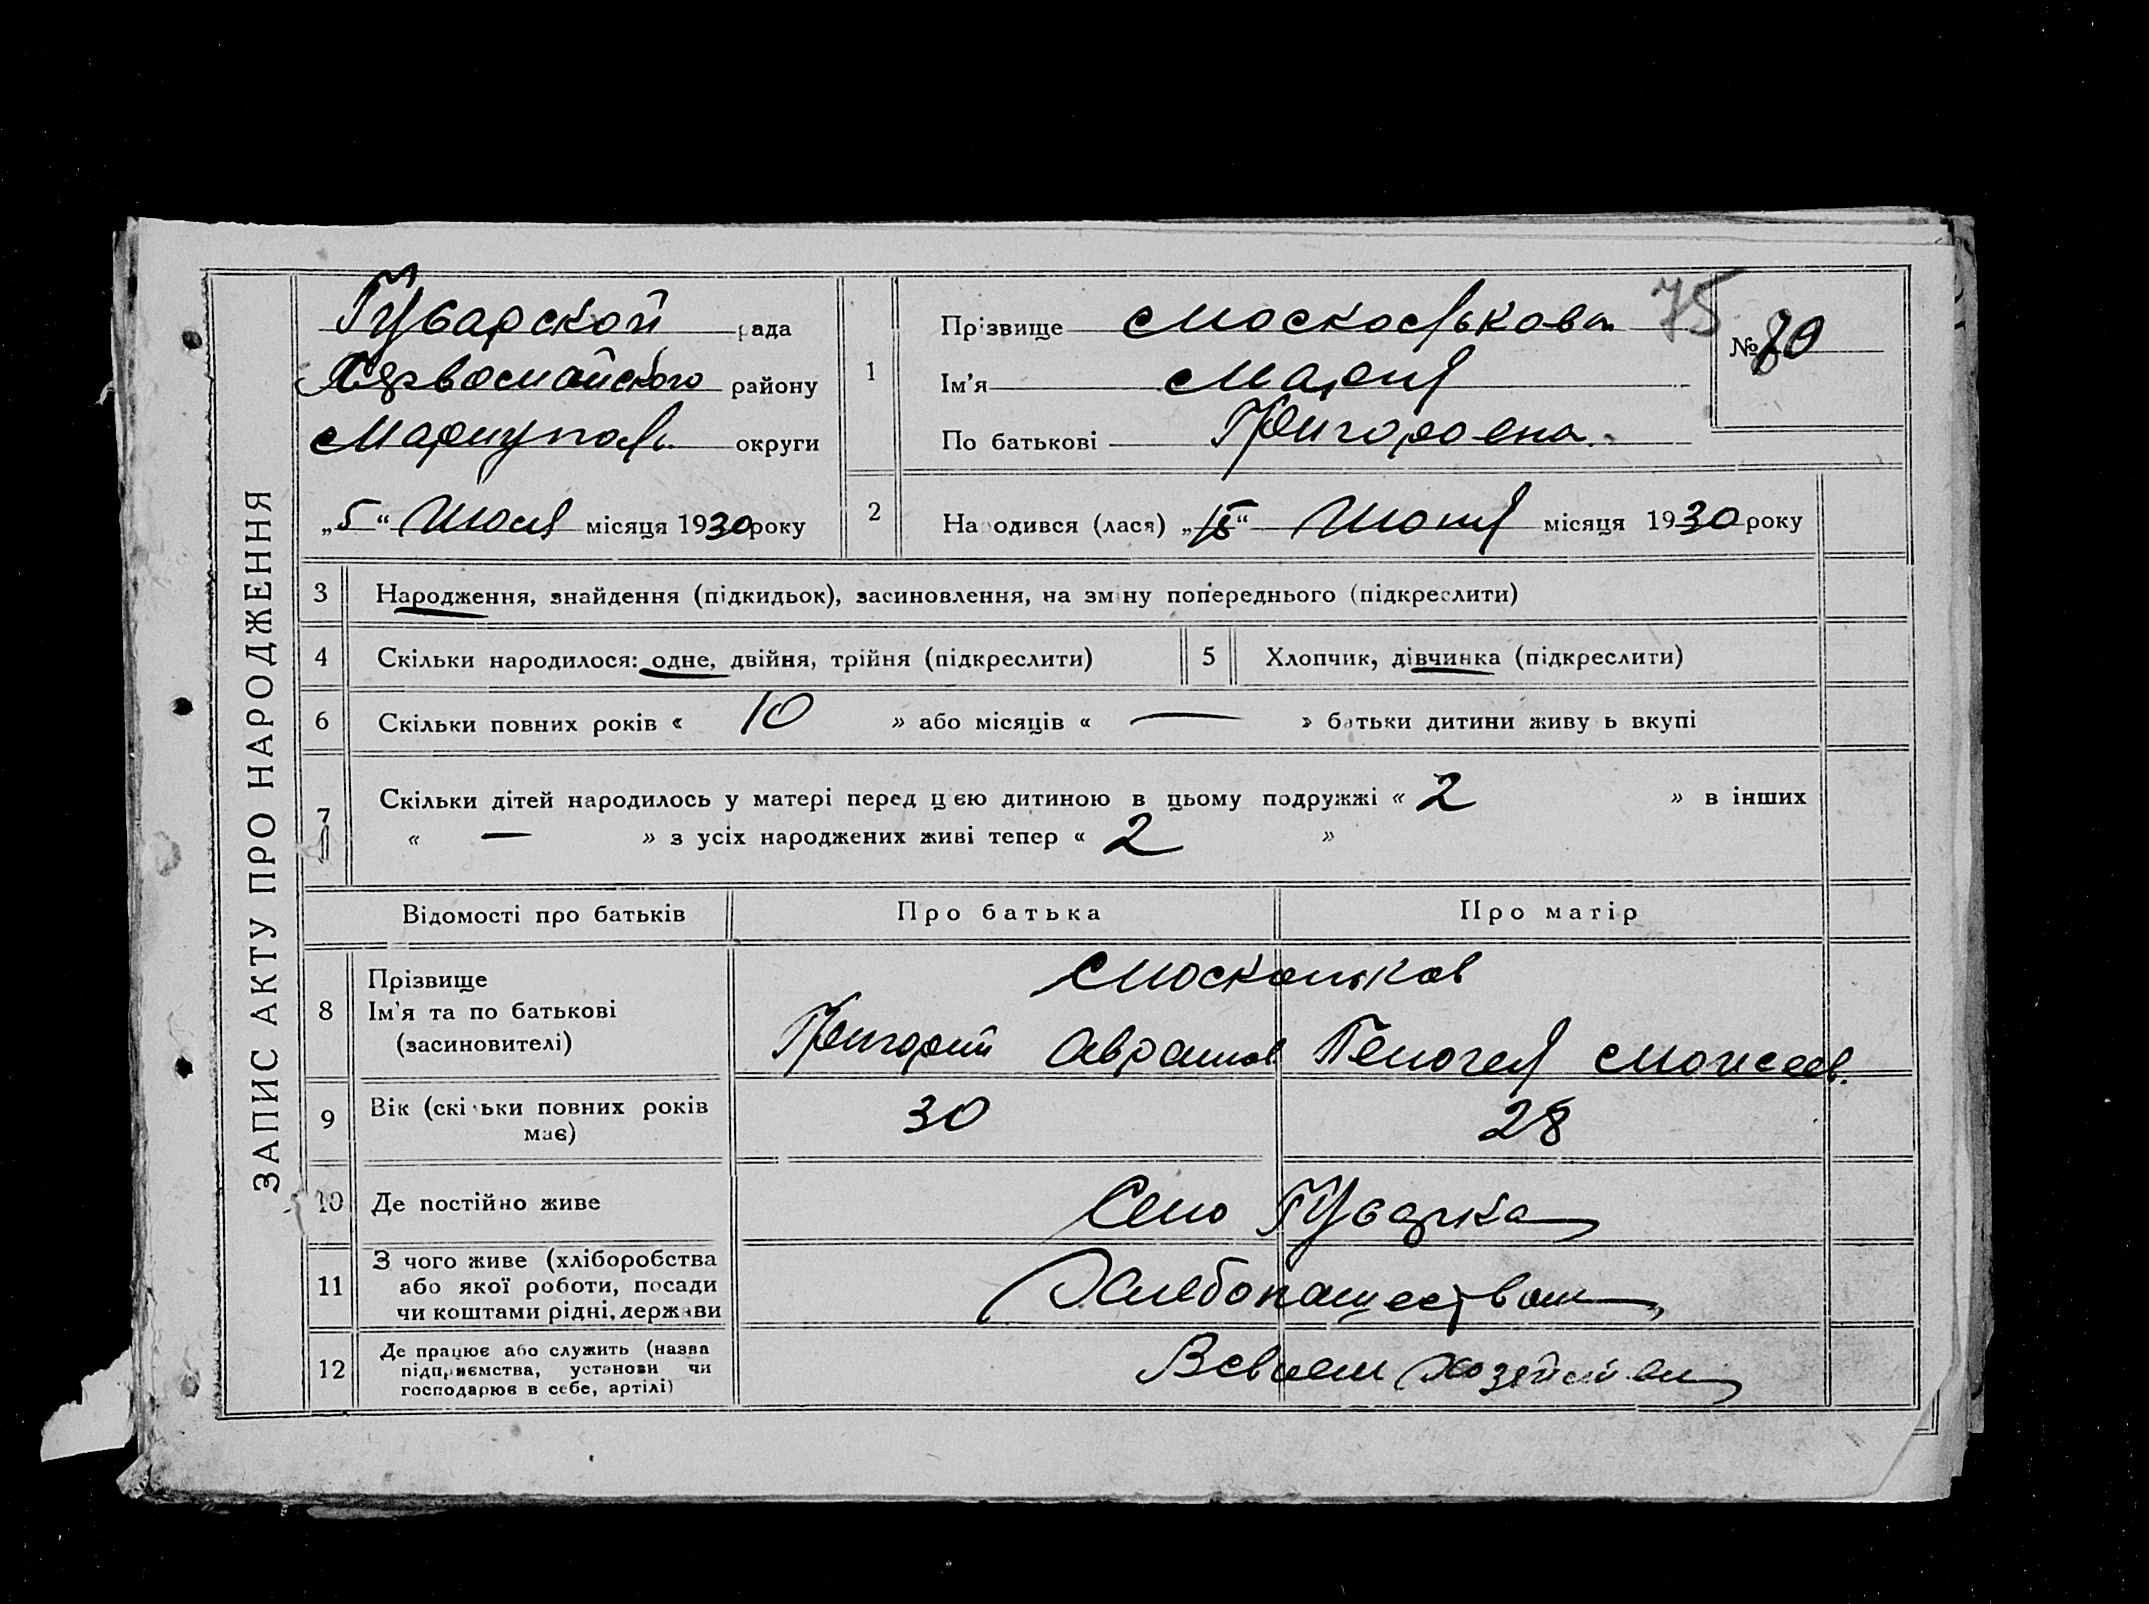 ЗАПИС АКТУ ПРО НАРОДЖЕННЯ
рада
района району
Мариуполь округи
„5“ Июля місяця 1930 року
1
Прізвище
Ім’я Мария
По батькові Григоровна.
75
№ 70
2
Народився (лася) „15“ Июня місяця 1930 року
3 Народження, знайдення (підкидьок), засиновлення, на зміну попереднього (підкреслити)
4 Скільки народилося: одне, двійня, трійня (підкреслити)
5 Хлопчик, дівчинка (підкреслити)
6 Скільки повних років « 10 » або місяців « — » батьки дитини живуть вкупі
7 Скільки дітей народилось у матері перед цією дитиною в цьому подружжі « 2 » в інших
« — » з усіх народжених живі тепер « 2 »
Відомості про батьків Про батька Про матір
8 Прізвище
Ім’я та по батькові
(засиновителі)
Москольков
Григорий Аврамов Моисеев.
9 Вік (скільки повних років
має)
30 28
10 Де постійно живе
Село
11 З чого живе (хліборобства
або якої роботи, посади
чи коштами рідні, держави
Хлебопашеством
12 Де працює або служить (назва
підприємства, установи чи
господарює в себе, артілі)